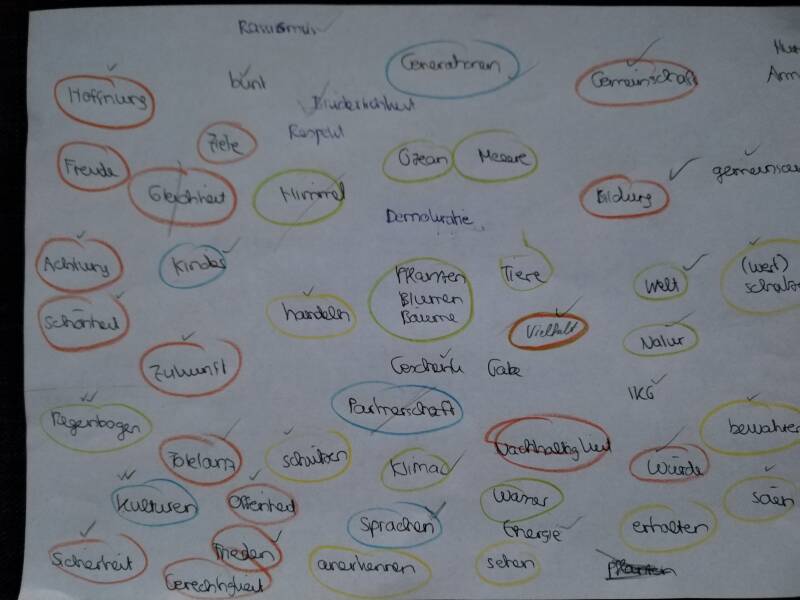 Rassismus
Generationen
Hoffnung
bunt
Gemeinschaft
Brüderlichkeit
Ziele
Respekt
Freude
Ozean
Meere
Gleichheit
Himmel
Bildung
Demokratie
Achtung
Kinder
Pflanzen
Blumen
Bäume
Tiere
Welt
(wert)
Schönheit
handeln
Vielfalt
Natur
Zukunft
Geschenk
Gabe
IKG
Partnerschaft
Regenbogen
bewahren
Toleranz
schützen
Klima
Nachhaltigkeit
Würde
Kulturen
Offenheit
Wasser
säen
Sprachen
Energie
erhalten
Sicherheit
Frieden
anerkennen
sehen
Pflanzen
Gerechtigkeit